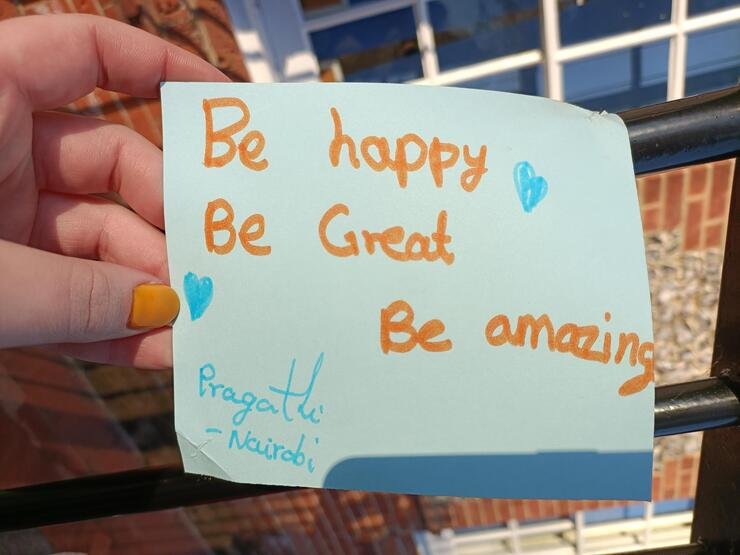 Be happy
Be Great
Be amazing
Pragathi
- Nairobi